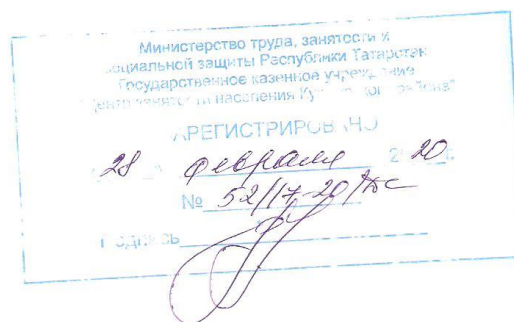 Министерство труда, занятости и
социальной защиты Республики Татарстан
Государственное казенное учреждение
"Центр занятости населения района"
ЗАРЕГИСТРИРОВАНО
28 февраля 2020
№ 52/17-20/
Подпись